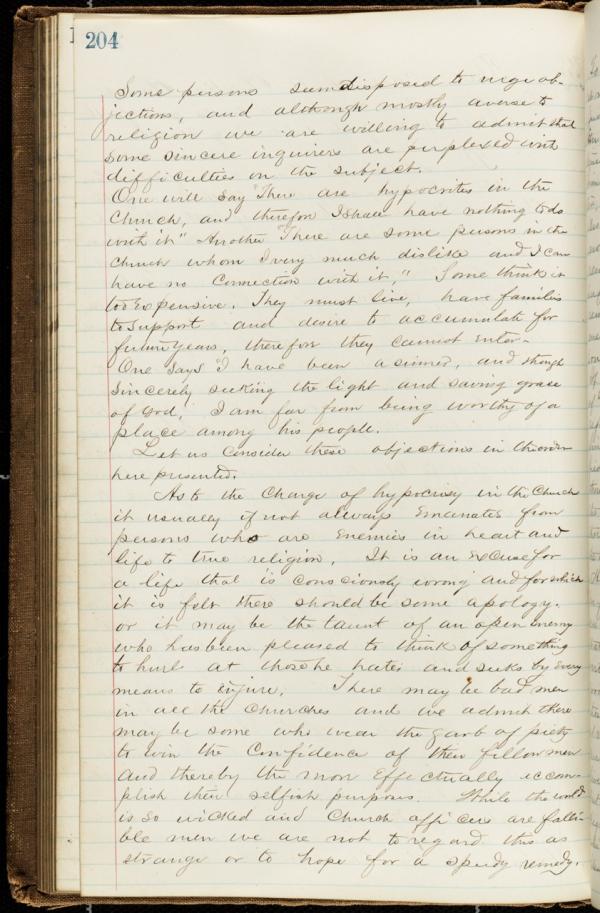 204
Some persons seem disposed to urge ob-
jections, and although mostly averse to
religion we are willing to admit that
some sincere inquirers are perplexed with
difficulties on the subject.
One will say "There are hypocrites in the
Church, and therefore I shall have nothing to do
with it" Another "There are some persons in the
Church whom I very much dislike and I can
have no connection with it," Some think it
too expensive. They must live, have families
to support and desire to accumulate for
future years, therefore they cannot enter-
One says "I have been a sinner, and though
sincerely seeking the light and saving grace
of God, I am far from being worthy of a
place among his people.
Let us consider these objections in the order
here presented.
As to the charge of hypocrisy in the Church
it usually if not always emanates from
persons who are enemies in heart and
life to true religion. It is an excuse for
a life that is consciously wrong and for which
it is felt there should be some apology.
or it may be the taunt of an open enemy
who has been pleased to think of something
to hurl at those he hates and seeks by every
means to injure. There may be bad men
in all the Churches and we admit there
may be some who wear the garb of piety
to win the confidence of their fellow men
and thereby the more effectually accom-
plish their selfish purposes. While the world
is so wicked and Church officers are falli-
ble men we are not to regard this as
strange or to hope for a speedy remedy.